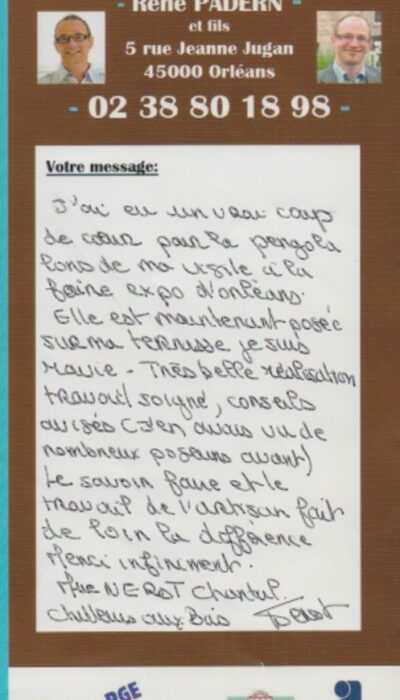 - René PADERN -
et fils
5 rue Jeanne Jugan
45000 Orléans
- 02 38 80 18 98 -
Votre message:
J'ai eu un vrai coup
de cœur pour la pergola
lors de ma visite à la
foire expo d'orléans.
Elle est maintenant posée
sur ma terrasse je suis
ravie - Très belle réalisation
travail soigné, conseils
avisés (J'en avais vu de
nombreux poseurs avant)
Le savoir faire et le
travail de l'artisan fait
de loin la différence
Merci infiniment.
Mme NEROT Chantal.
Chilleurs aux Bois
RGE